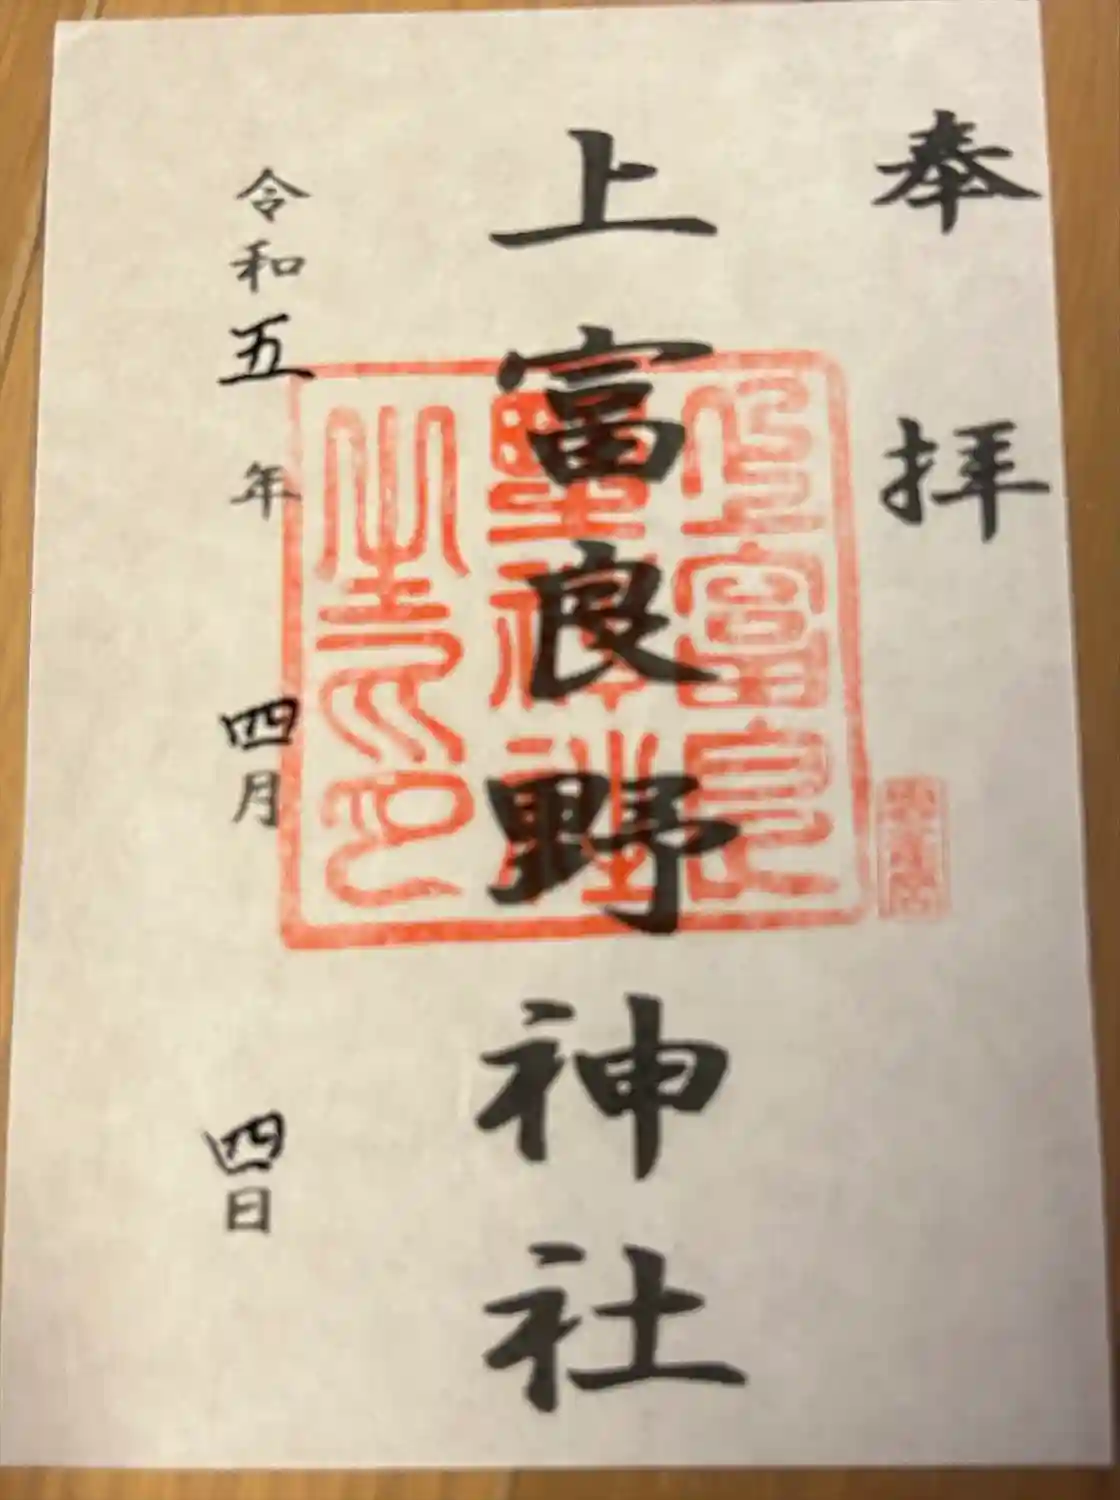 奉拝
上富良野神社
上富良
野神社
之印
令和五年四月四日